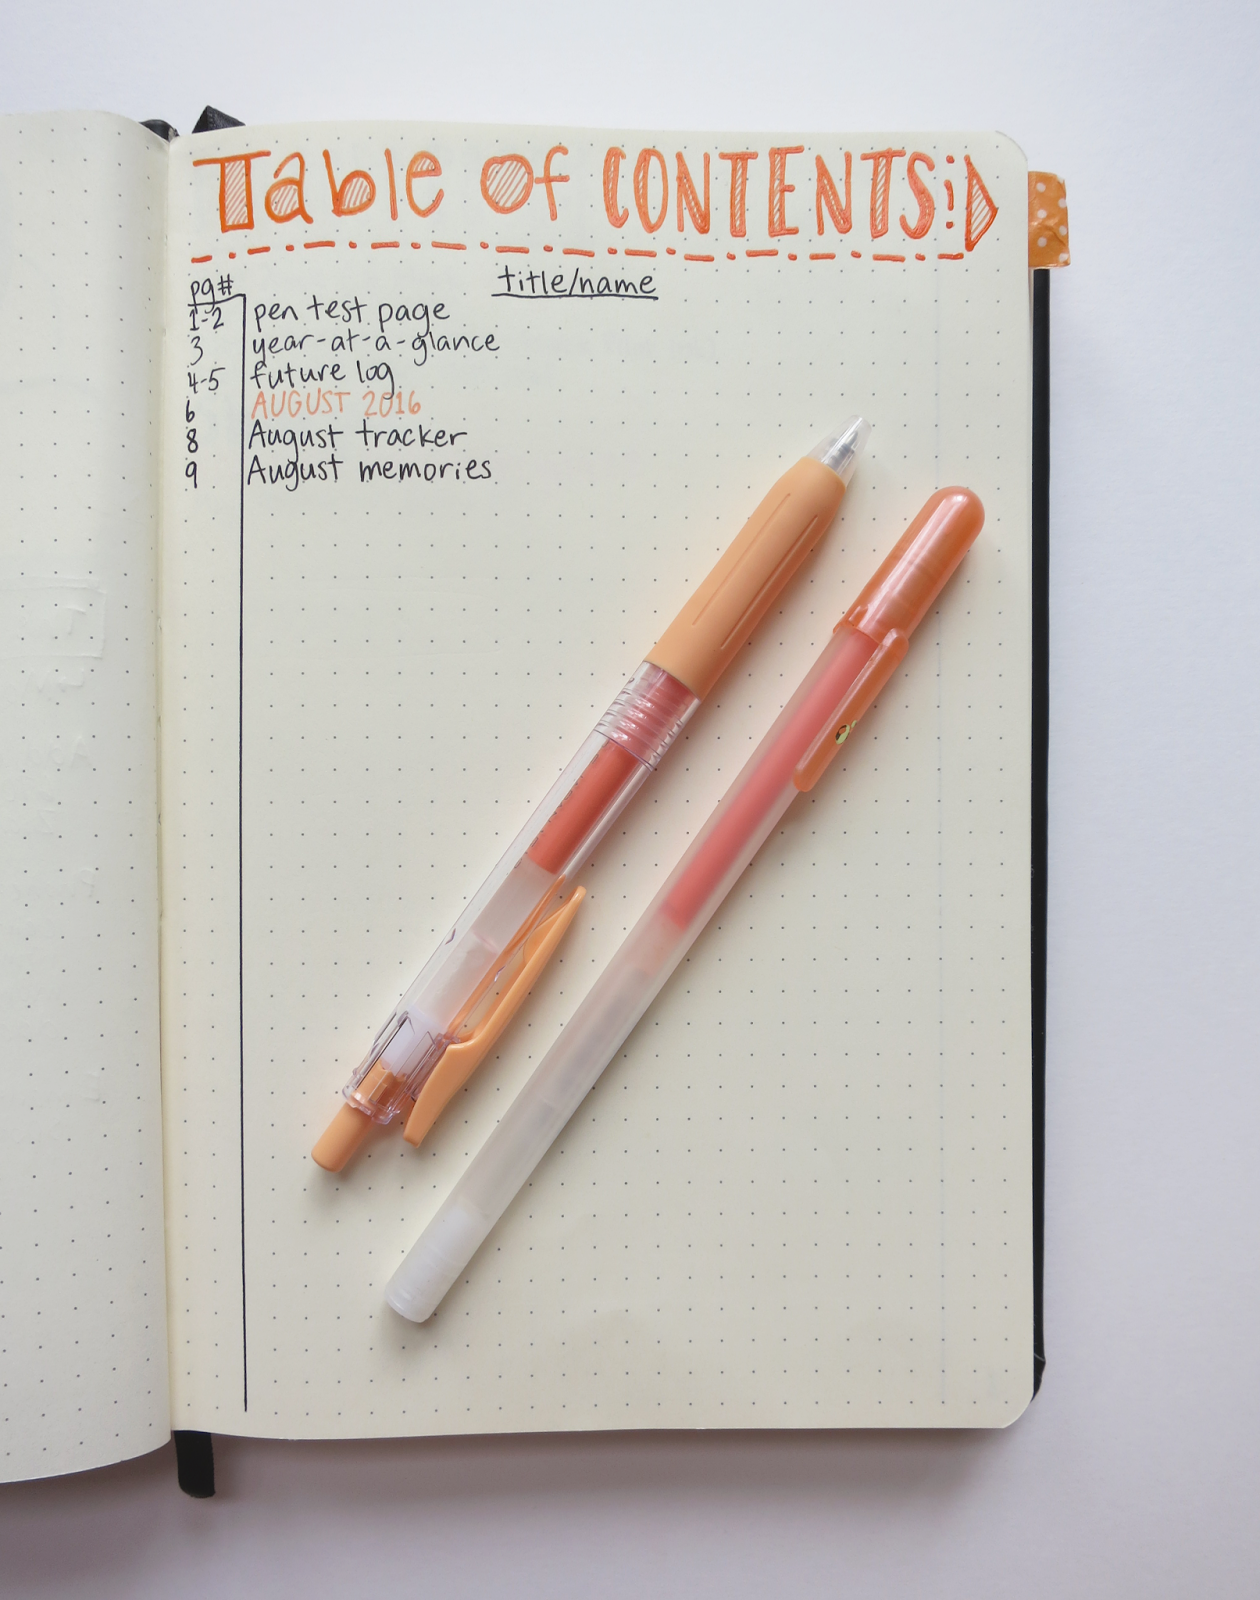 Table of CONTENTS:
pg# title/name
1-2 pen test page
3 year-at-a-glance
4-5 future log
6 AUGUST 2016
8 August tracker
9 August memories